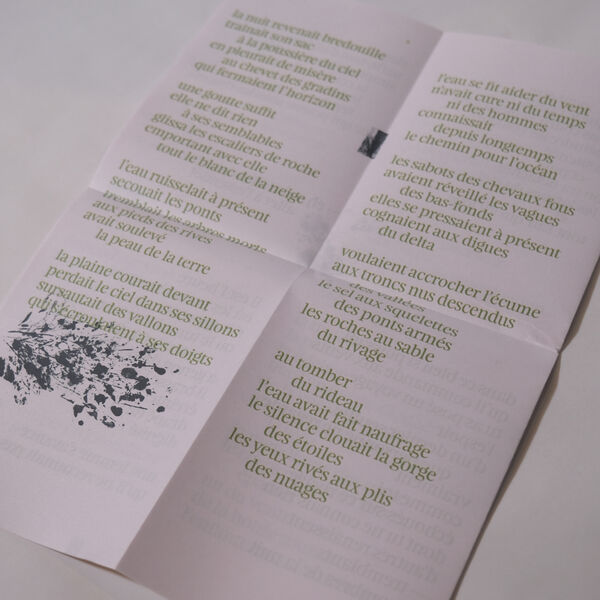 la nuit revenait bredouille
traînait son sac
à la poussière du ciel
en pleurait de misère
au chevet des gradins
qui fermaient l'horizon
une goutte suffit
elle ne dit rien
à ses semblables
glissa les escaliers de roche
emportant avec elle
tout le blanc de la neige
l'eau ruisselait à présent
secouait les ponts
tremblait les arbres morts
aux pieds des rives
avait soulevé
la peau de la terre
la plaine courait devant
perdait le ciel dans ses sillons
sursautait des vallons
qui à ses doigts
l'eau se fit aider du vent
n'avait cure ni du temps
ni des hommes
connaissait
depuis longtemps
le chemin pour l'océan
les sabots des chevaux fous
avaient réveillé les vagues
des bas-fonds
elles se pressaient à présent
cognaient aux digues
du delta
voulaient accrocher l'écume
aux troncs nus descendus
des vallées
le sel aux squelettes
des ponts armés
les roches au sable
du rivage
au tomber
du rideau
l'eau avait fait naufrage
le silence clouait la gorge
des étoiles
les yeux rivés aux plis
des nuages